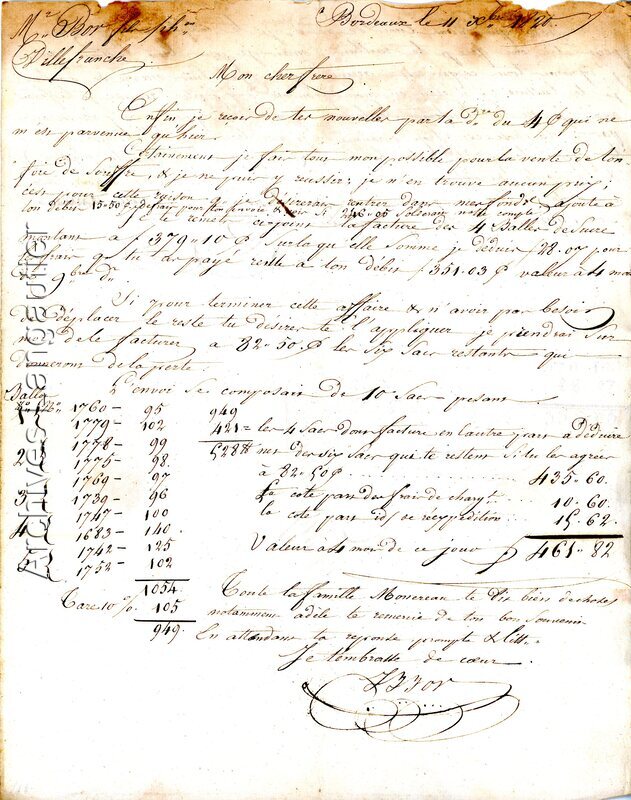 Mr Bor fils
Bordeaux le 11 Xbre 1820
Villefranche
Mon cher frere
Enfin je reçois de tes nouvelles par ta du 4 Ct qui ne
m'en parvenue qu'hier.
Certainement je fais tout mon possible pour la vente de ton
foie de Souffre, & je ne puis y reussir; je n'en trouve aucun prix;
c'est pour cette raison que je désirerais rentrer dans mes fonds, ajoute à
ton débit 15-50 de frais pour ton envoie, & lors si 246-05 Solderais notre compte
Je te remets ci-joint la facture des 4 Balles de Suire
montant a f 379-10 Ct Sur la quelle Somme je déduis f 28.07 pour
frais q. tu as payé reste a ton débit f 351.03 Ct valeur à 4 mois
9bre dr
Si pour terminer cette affaire & n'avoir pas besoin
de déplacer le reste tu désires te l'appliquer je prendrai Sur
moi de le facturer a 82-50 Ct les six Sacs restants qui
donneront de la perte.
L'envoi Se composait de 10 Sacs pesant
Balles
1760 - 95
1779 - 102
2 1778 - 99
1775 - 98
1769 - 97
3 1739 - 96
1747 - 100
4 1683 - 140
1742 - 125
1752 - 102
1054
Tare 10 % 105
949
949
421 = les 4 Sacs dont facture en l'autre part a Déduire
528 # net des six Sacs qui te restent Si tu les agrées
à 82-50 Ct 435-60
ta cote part des frais de chargt 10-60
la cote part id de réexpédition 15-62
Valeur à 4 mois de ce jour f 461-82
Toute la famille Monereau te dis bien de choses
notamment adile te remercie de ton bon Souvenir
En attendant ta reponse prompte &
Je t'embrasse de cœur
Bor
Archives Tangautier